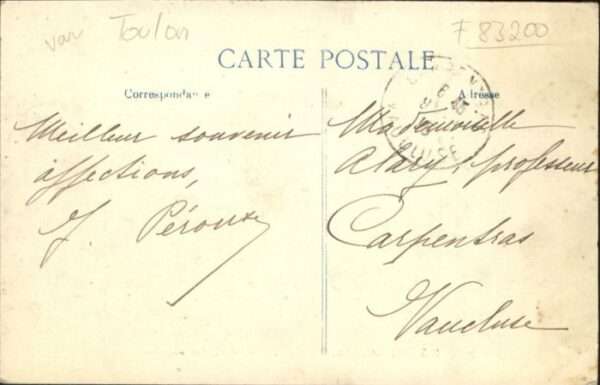 var Toulon
F 83200
CARTE POSTALE
Correspondance
Adresse
Meilleur souvenir
affections,
J. Pérouse
Mademoiselle
Alary, professeur
Carpentras
Vaucluse